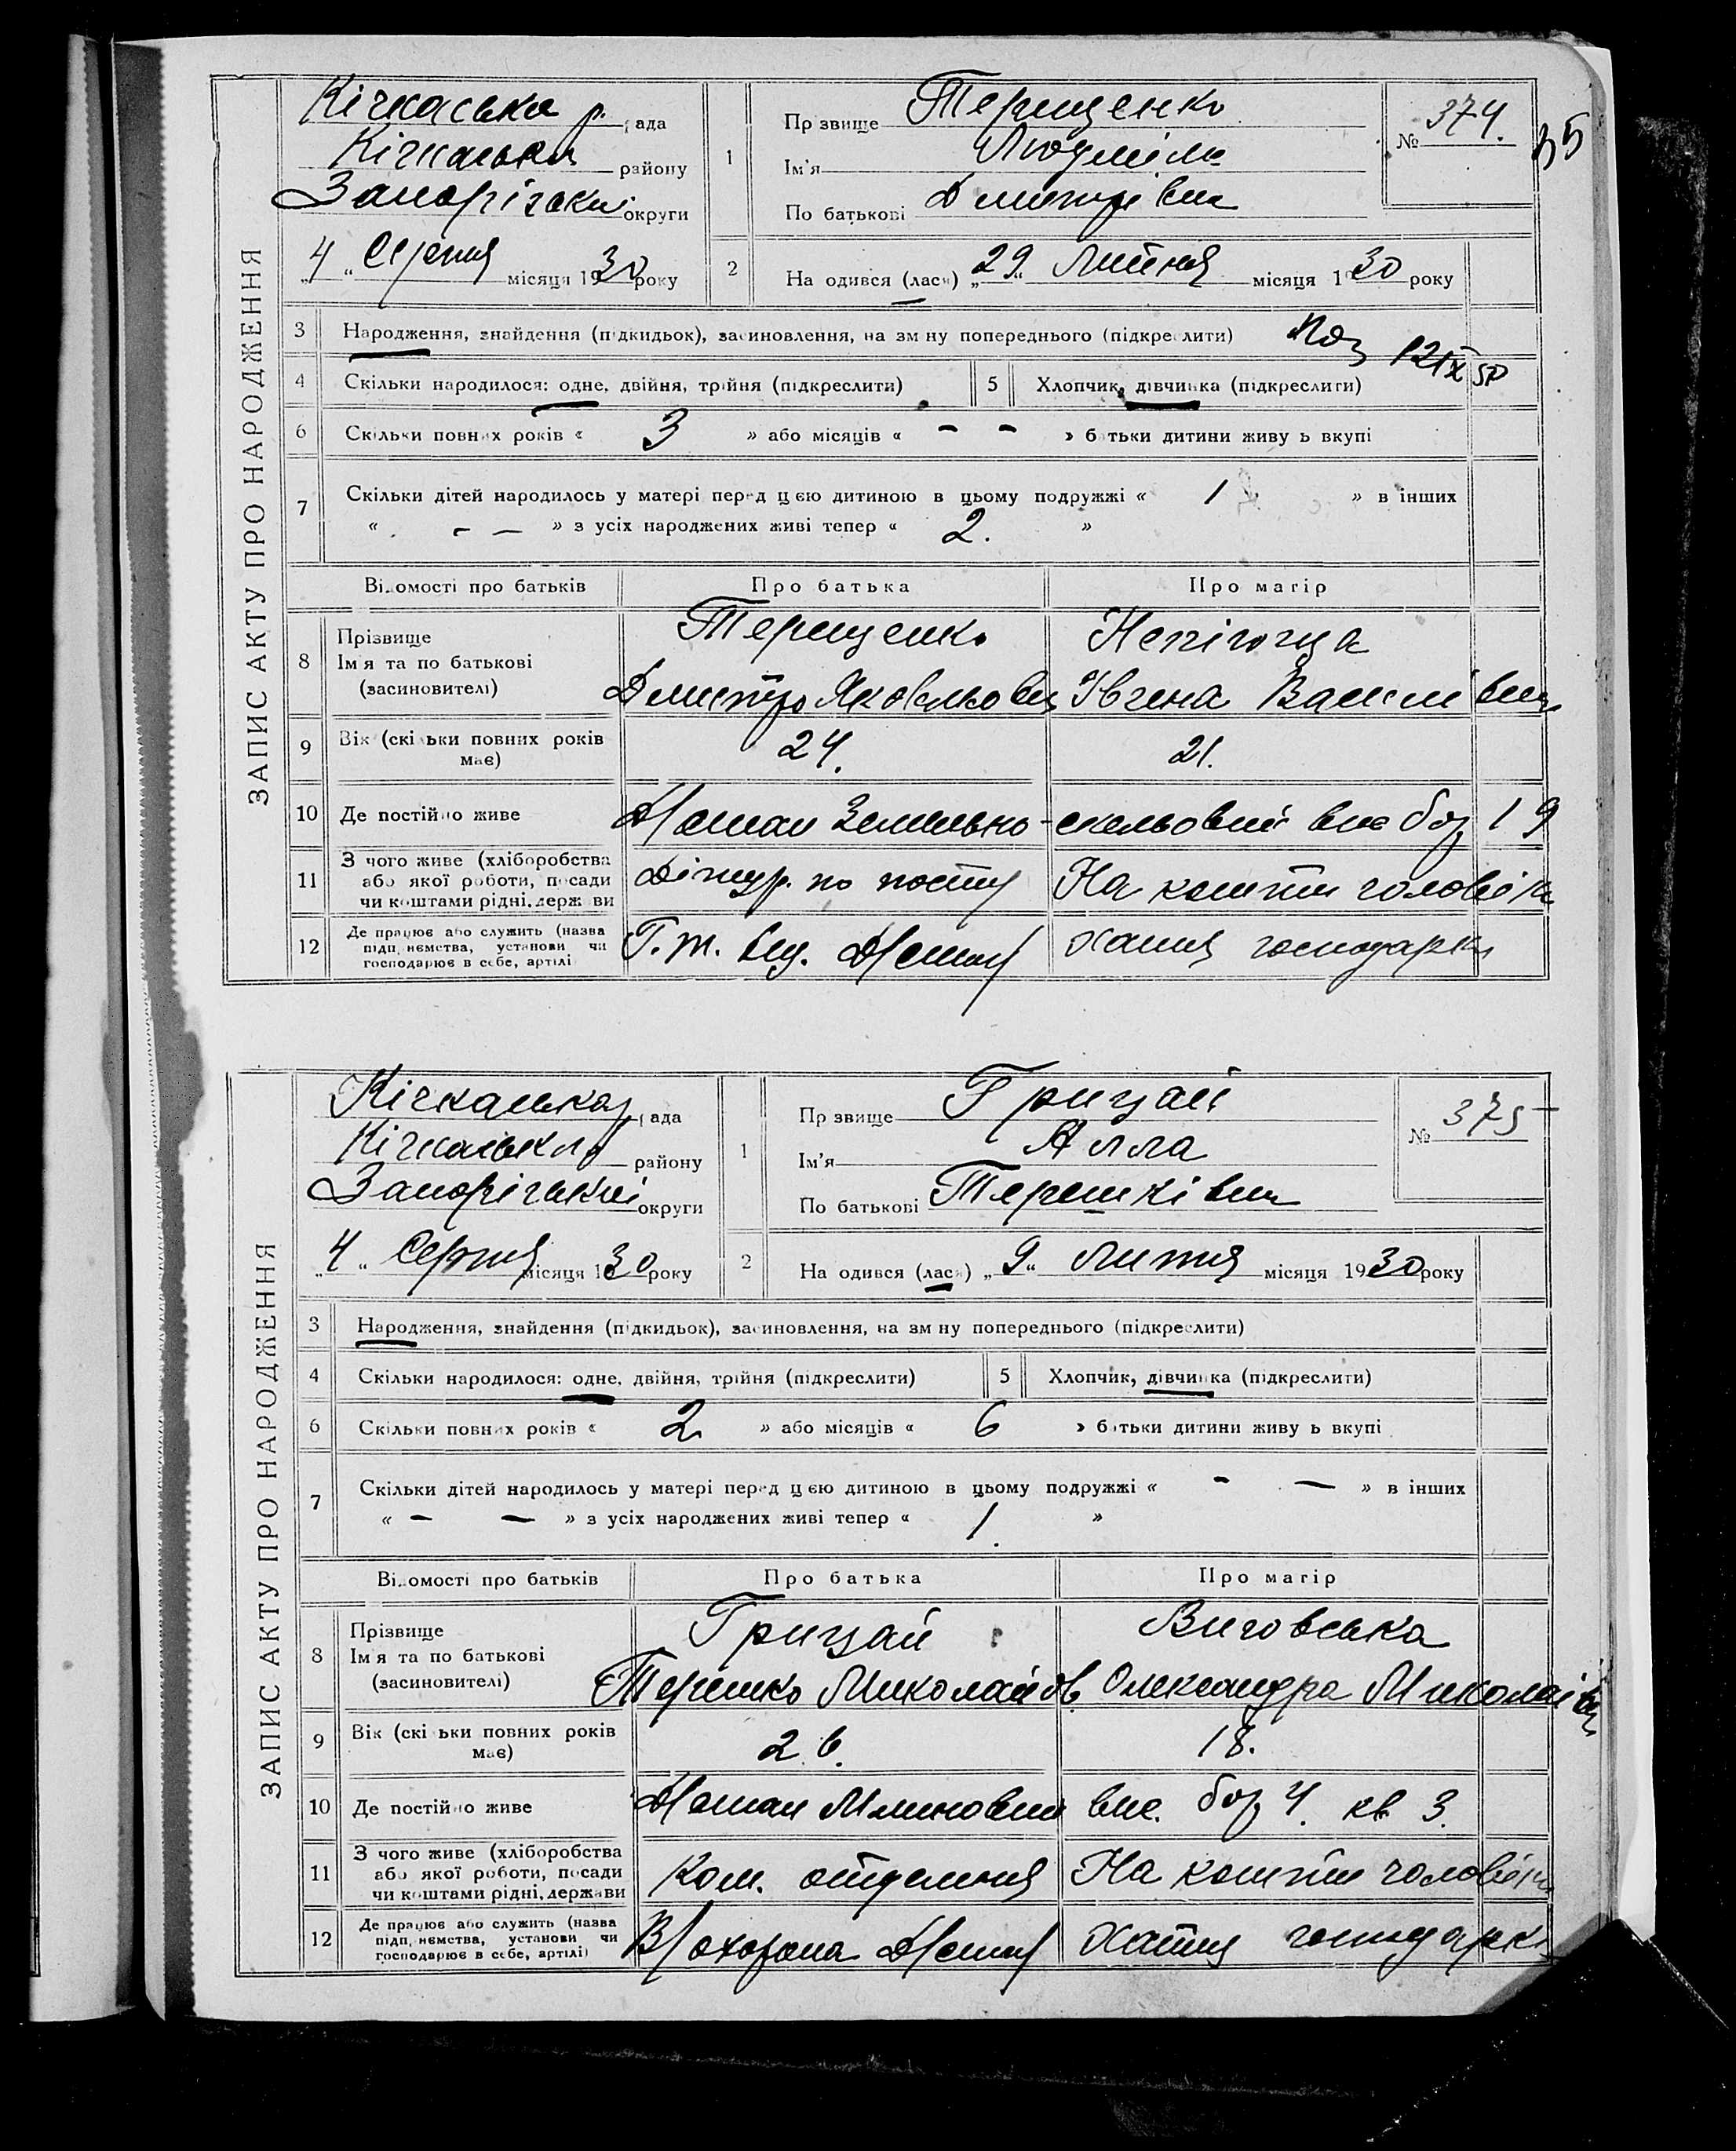 35
ЗАПИС АКТУ ПРО НАРОДЖЕННЯ
Кічкаська р. рада
Кічкаськ району
Запорізьки округи
„4“ Серпня місяця 1930 року
1
Прізвище Терещенко
Ім'я Людміла
По батькові Дмитрівна
№ 374.
2
На одився (лась) „29“ Липня місяця 1930 року
3 Народження, знайдення (підкидьок), засиновлення, на зміну попереднього (підкреслити)
4 Скільки народилося: одне, двійня, трійня (підкреслити) 5 Хлопчик, дівчинка (підкреслити)
6 Скільки повних років « 3 » або місяців « - - » батьки дитини живуть вкупі
7 Скільки дітей народилось у матері перед цією дитиною в цьому подружжі « 1 » в інших
« - — » з усіх народжених живі тепер « 2. »
Відомості про батьків Про батька Про матір
8 Прізвище
Ім'я та по батькові
(засиновителі)
Терещенко
Дмитро Яковльов
Івгена Василівна
9 Вік (скільки повних років має) 24. 21.
10 Де постійно живе вис 19
11 З чого живе (хліборобства
або якої роботи, посади
чи коштами рідні, держави
по посту На кошти чоловіка
12 Де працює або служить (назва
підприємства, установи чи
господарює в себе, артілі
Хатня господарка
ЗАПИС АКТУ ПРО НАРОДЖЕННЯ
Кічкаська рада
Кічкаськ району
Запорізькоі округи
„4“ Серпня місяця 1930 року
1
Прізвище Грицай
Ім'я Алла
По батькові Терешківна
№ 375
2
На одився (лась) „9“ Липня місяця 1930 року
3 Народження, знайдення (підкидьок), засиновлення, на зміну попереднього (підкреслити)
4 Скільки народилося: одне, двійня, трійня (підкреслити) 5 Хлопчик, дівчинка (підкреслити)
6 Скільки повних років « 2 » або місяців « 6 » батьки дитини живуть вкупі
7 Скільки дітей народилось у матері перед цією дитиною в цьому подружжі « - — » в інших
« - — » з усіх народжених живі тепер « 1. »
Відомості про батьків Про батька Про матір
8 Прізвище
Ім'я та по батькові
(засиновителі)
Грицай Виговська
Терешко Миколайов Олександра Миколаівна
9 Вік (скільки повних років має) 26. 18.
10 Де постійно живе вис. 4. кв 3.
11 З чого живе (хліборобства
або якої роботи, посади
чи коштами рідні, держави
Ком. отделння На кошти чоловіка
12 Де працює або служить (назва
підприємства, установи чи
господарює в себе, артілі)
В/охорона Хатня господарка